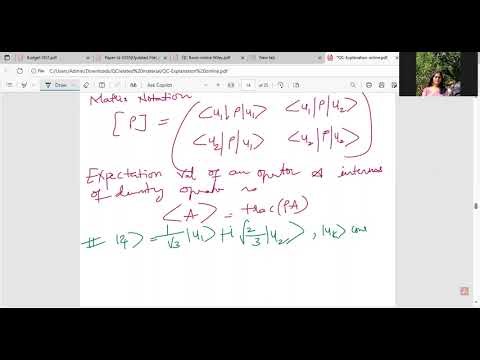 Budget-2021.pdf
QC Basic-online Wiley.pdf
New tab
*QC-Explanation-online.pdf
C:/Users/Admin/Downloads/QC/related%20material/QC-Explanation%20online.pdf
Matrix Notation
[ρ] = (<u₁|ρ|u₁> <u₁|ρ|u₂>
<u₂|ρ|u₁> <u₂|ρ|u₂>)
Expectation val of an operator A in terms
of density operator is
<A> = trac(ρA)
# |ψ> = 1/√3 |u₁> + i √2/3 |u₂>, |uₖ> con